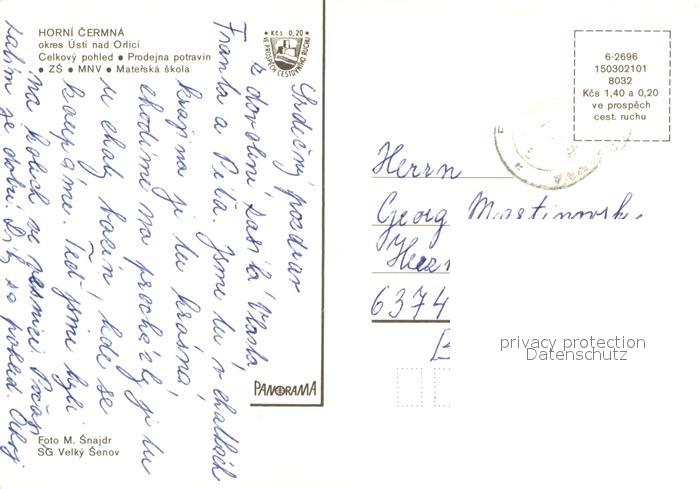 HORNÍ ČERMNÁ
okres Ústí nad Orlicí
Celkový pohled ● Prodejna potravin
● ZŠ ● MNV ● Mateřská škola
★ Kčs 0,20 ★
VE PROSPĚCH CESTOVNÍHO RUCHU
6-2696
150302101
8032
Kčs 1,40 a 0,20
ve prospěch
cest. ruchu
Srdečný pozdrav
z dovolené zasílá Vlasta
Franta a Píťa. Jsme tu v chatkách
krajina je tu krásná,
chodíme na procházky je tu
u chaty bazén, kde se
koupáme. Teď jsme byli
na kolech ve vesnici. Počasí
zatím je dobré. Díky za pohled. Ahoj
Herrn
Georg
6374
PANORAMA
Foto M. Šnajdr
SG Velký Šenov
privacy protection
Datenschutz